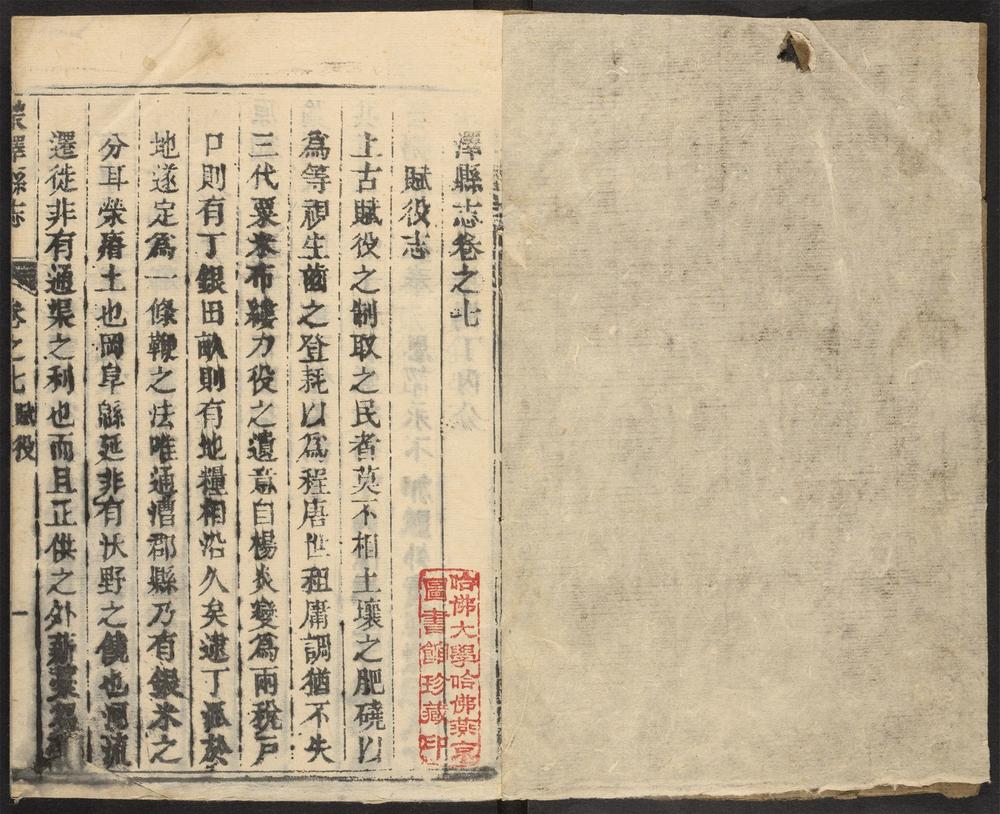 澤縣志卷之七
賦役志
上古賦役之制取之民者莫不相土壤之肥磽以
為等視生齒之登耗以為程唐世租庸調猶不失
三代粟米布縷力役之遺意自楊炎變為兩稅戶
口則有丁銀田畝則有地糧相沿久矣逮丁派於
地遂定為一條鞭之法唯通漕郡縣乃有銀米之
分耳榮瘠土也岡阜緜延非有沃野之饒也河流
遷徙非有通渠之利也而且正供之外薪蒭
榮澤縣志
卷之七
賦役
一
哈佛大學哈佛燕京
圖書館珍藏印